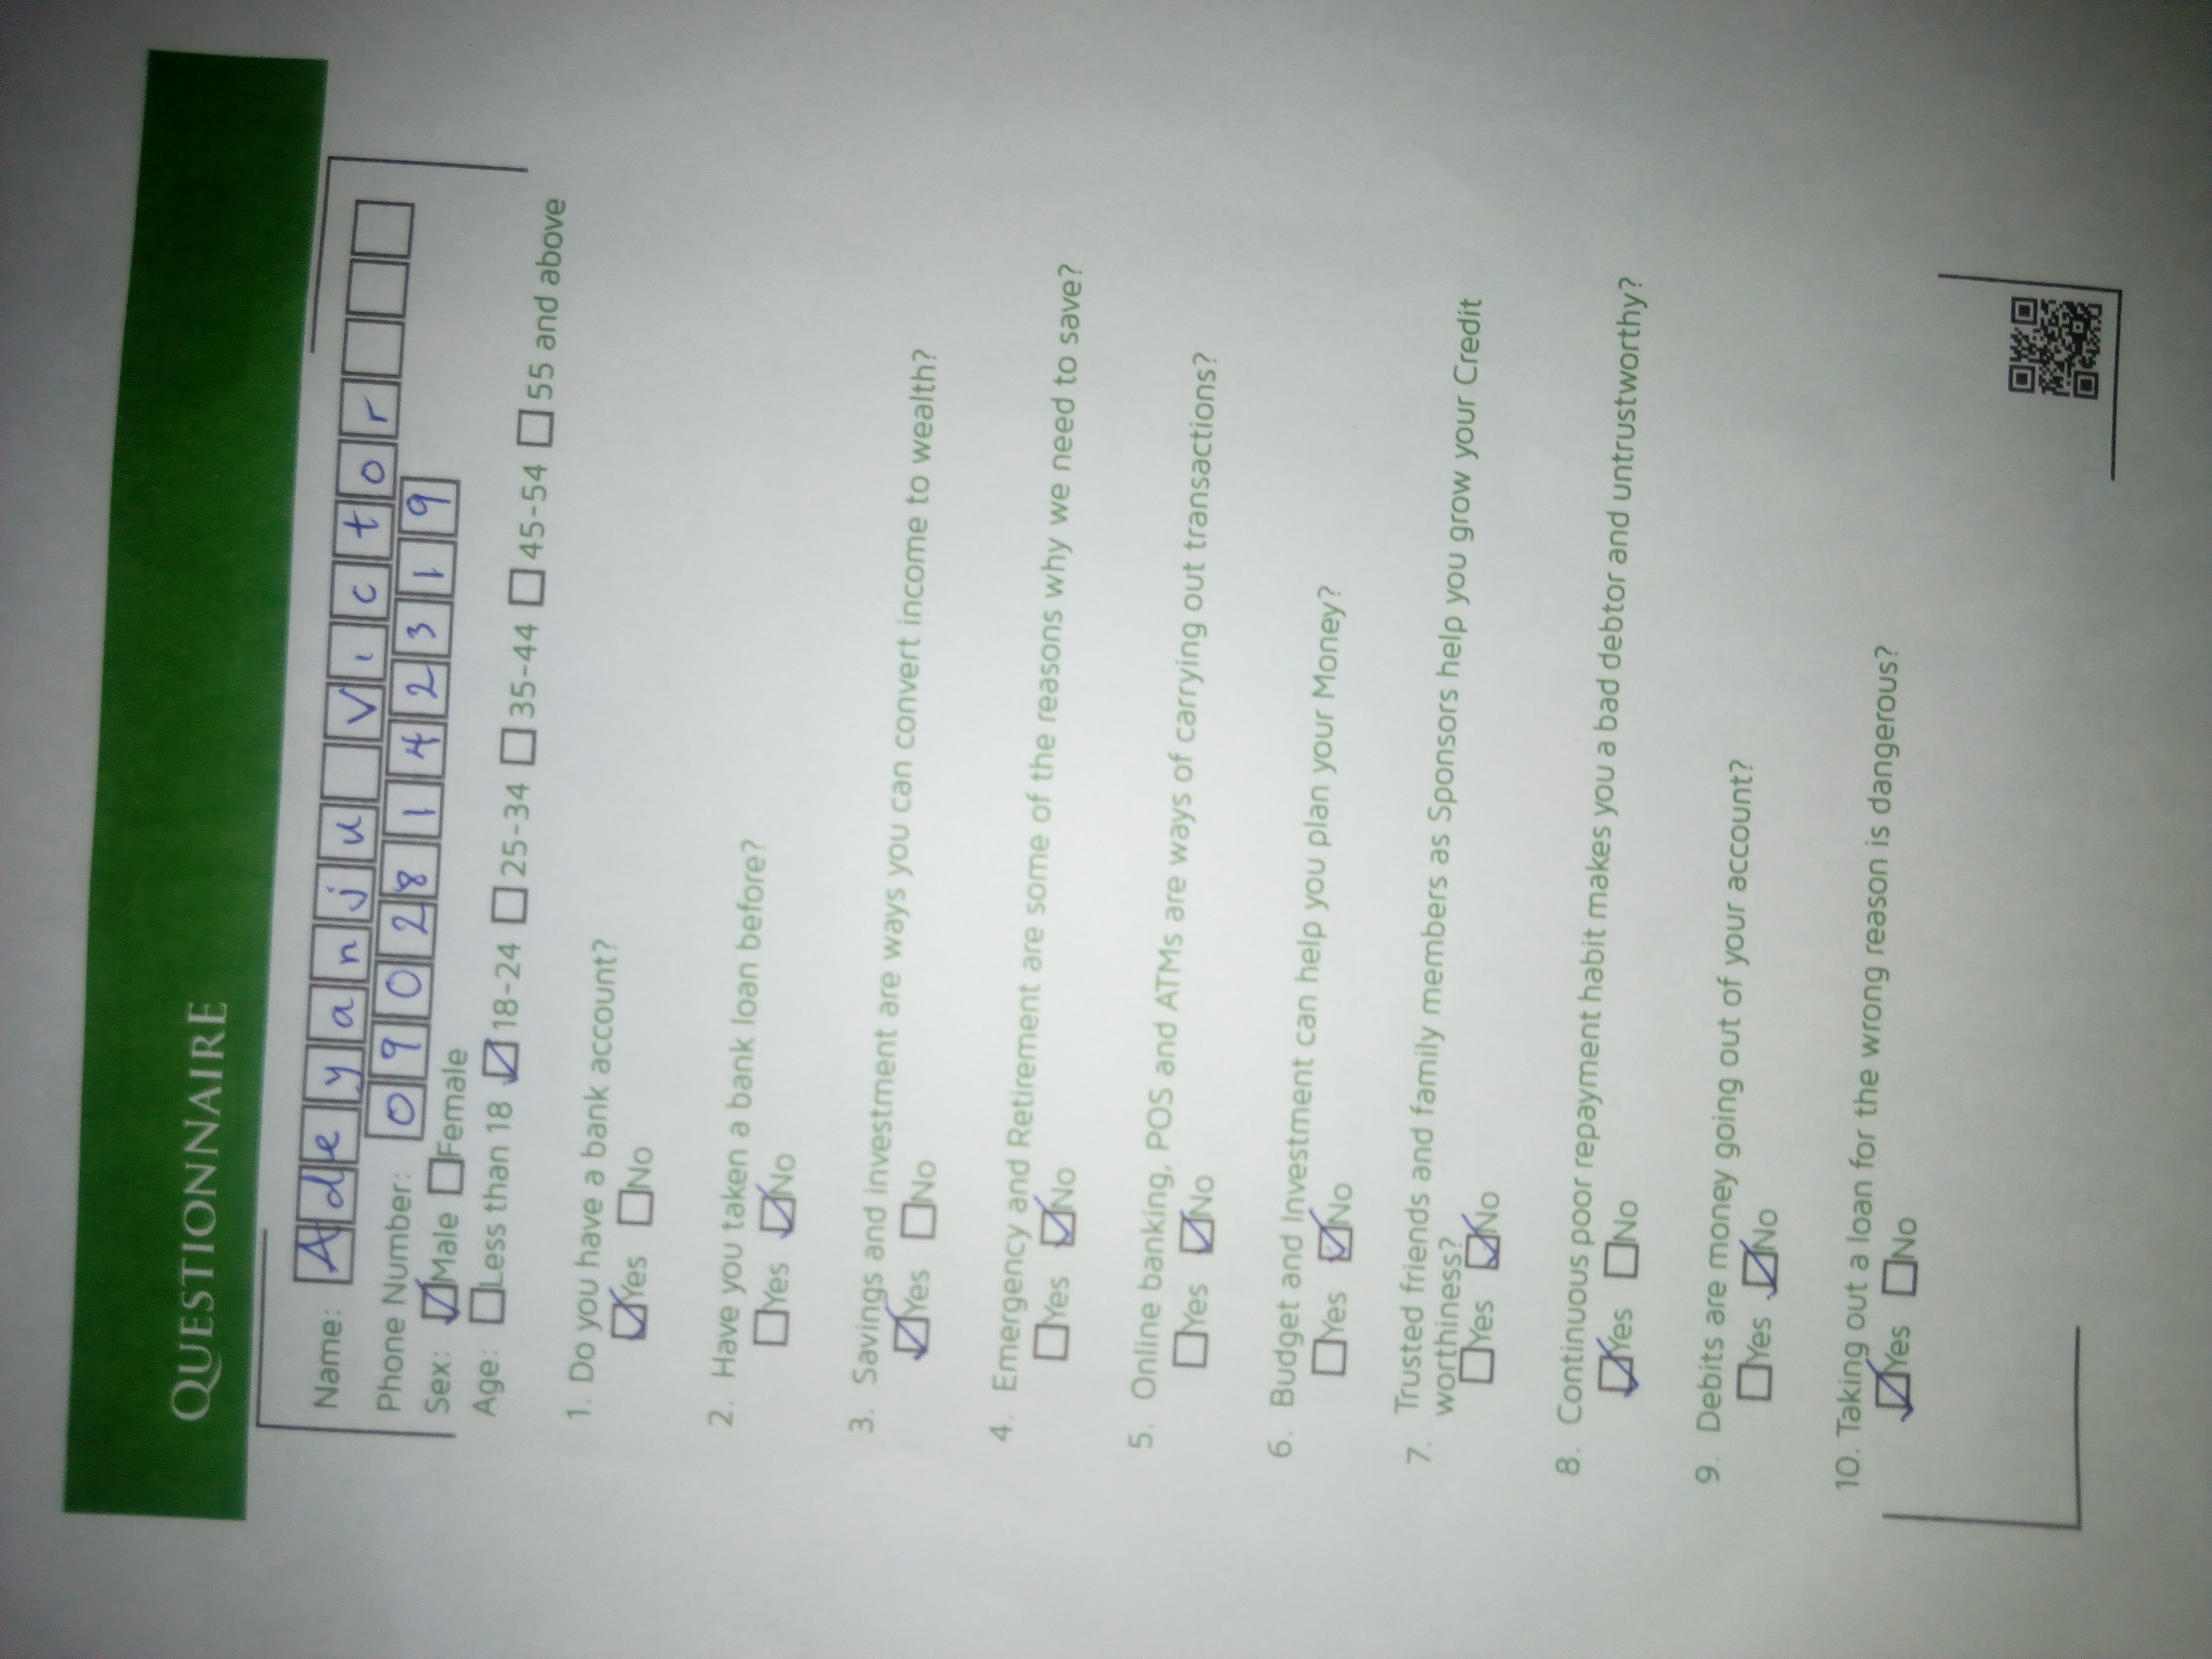 QUESTIONNAIRE
Name: Adeyanju Victor
Phone Number: 09028142319
Sex: ☑Male ☐Female
Age: ☐Less than 18 ☑18-24 ☐25-34 ☐35-44 ☐45-54 ☐55 and above
1. Do you have a bank account?
☑Yes ☐No
2. Have you taken a bank loan before?
☐Yes ☑No
3. Savings and investment are ways you can convert income to wealth?
☑Yes ☐No
4. Emergency and Retirement are some of the reasons why we need to save?
☐Yes ☑No
5. Online banking, POS and ATMs are ways of carrying out transactions?
☐Yes ☑No
6. Budget and Investment can help you plan your Money?
☐Yes ☑No
7. Trusted friends and family members as Sponsors help you grow your Credit
worthiness?
☐Yes ☑No
8. Continuous poor repayment habit makes you a bad debtor and untrustworthy?
☑Yes ☐No
9. Debits are money going out of your account?
☐Yes ☑No
10. Taking out a loan for the wrong reason is dangerous?
☑Yes ☐No